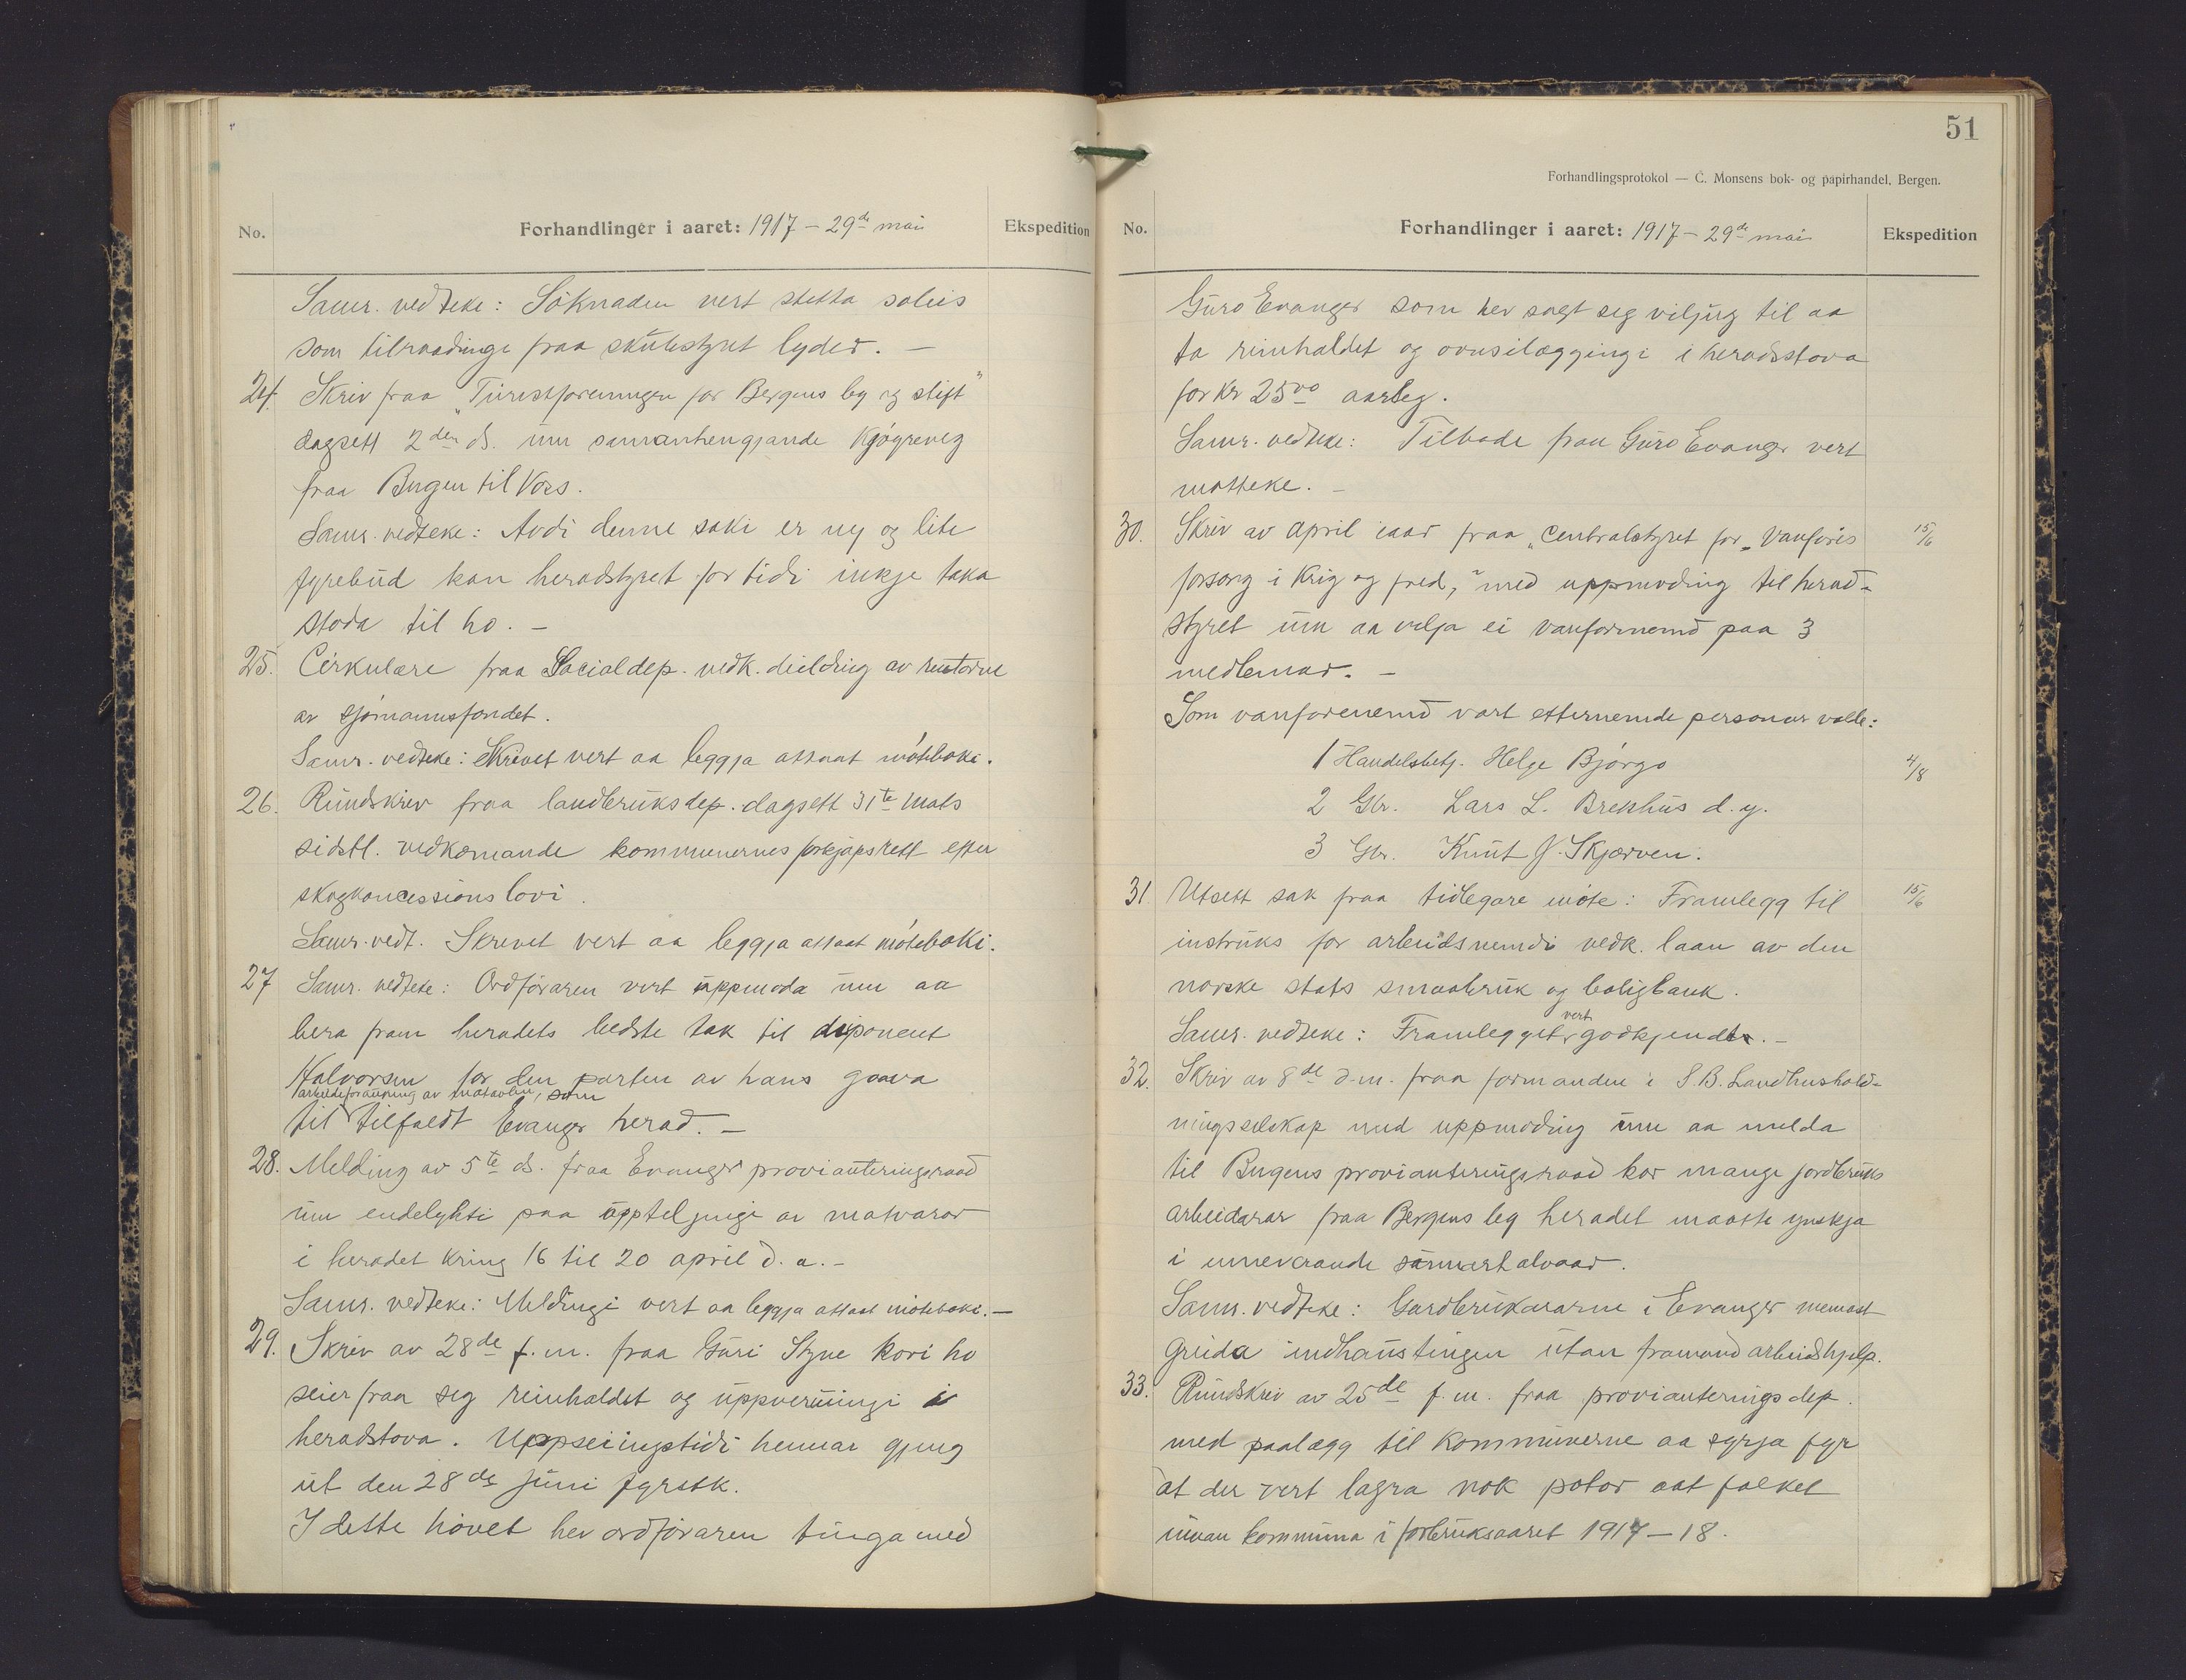 No.
Forhandlinger i aaret: 1917 – 29de mai
Ekspedition
Samr. vedteke: Söknaden vert stetta soleis
som tilraadinge fraa skulestyret lyder. –
24. Skriv fraa "Turistforeningen for Bergens by og stift"
dagsett 2den ds. um samanhengjande Kjøgreveg
fraa Bergen til Voss.
Samr. vedteke: Avdi denne saki er ny og lite
fyrebud kan heradstyret for tidi inkje taka
stoda til ho. –
25. Cirkulære fraa Socialdep. vedk. dieldring av rentorne
av sjömannsfondet.
Samr. vedteke: Skrivet vert aa leggja attaat möteboki.
26. Rundskriv fraa landbruksdep. dagsett 31te mats
sidstl. vedkomande kommunernes forkjøpsrett etter
skogkoncessionslovi.
Samr. vedt. Skrivet vert aa leggja attaat möteboki.
27 Samr. vedteke: Ordföraren vert uppmoda um aa
bera fram heradets bedste tak til disponent
Halvorsen for den parten av hans gaava
til arbeidsforauking av matavlen, som tilfaldt Evanger herad. –
28. Melding av 5te ds. fraa Evanger provianteringsraad
um endelykti paa uppteljingi av matvaror
i heradet kring 16 til 20 april d. a. –
Samr. vedteke: Meldingi vert aa leggja attaat möteboki. –
29. Skriv av 28de f.m. fraa Guri Styve kori ho
seier fraa seg reinhaldet og uppvermingi i
heradstova. Uppseiingstidi hennar gjeng
ut den 28de juni fyrstk.
I dette hövet hev ordföraren tinga med
51
Forhandlingsprotokol — C. Monsens bok- og papirhandel, Bergen.
No.
Forhandlinger i aaret: 1917 – 29de mai
Ekspedition
Guro Evanger som hev sagt seg viljug til aa
ta reinhaldet og ovnsilæggingi i heradsstova
for kr 25oo aarleg.
Samr. vedteke: Tilbode fraa Guro Evanger vert
motteke. –
30. Skriv av april iaar fraa "Centralstyret for "Vanföris 15/6
forsorg i krig og fred," med uppmoding til herad-
styret um aa velja ei vanförnemd paa 3
medlemar. –
Som vanförenemd vart etternemde personar valde:
1 Handelsbetj. Helge Björgo 4/8
2 Gbr. Lars L. Brekhus d. y.
3 Gbr. Knut J. Skjerven.
31 Utsett sak fraa tidlegare möte: Framlegg til 15/6
instruks for arbeidsnemdi vedk. laan av den
norske stats smaabruk og boligbank.
Samr. vedteke: Framlegget vert godkjendt. –
32. Skriv av 8de d.m. fraa formanden i S.B. Landhushold-
ningsselskap med uppmoding um aa melda
til Bergens provianteringsraad kor mange jordbruks
arbeidarar fraa Bergens by heradet maatte ynskja
i inneverande sumarhalvaar.
Samr. vedteke: Gardbrukararne i Evanger memast
greida indhaustingen utan framand arbeidshjelp.
33. Rundskriv av 25de f.m. fraa provianteringsdep.
med paalegg til kommunerne aa syrgja fyr
at der vert lagra nok potor aat folket
innan kommuna i forbruksaaret 1917–18.